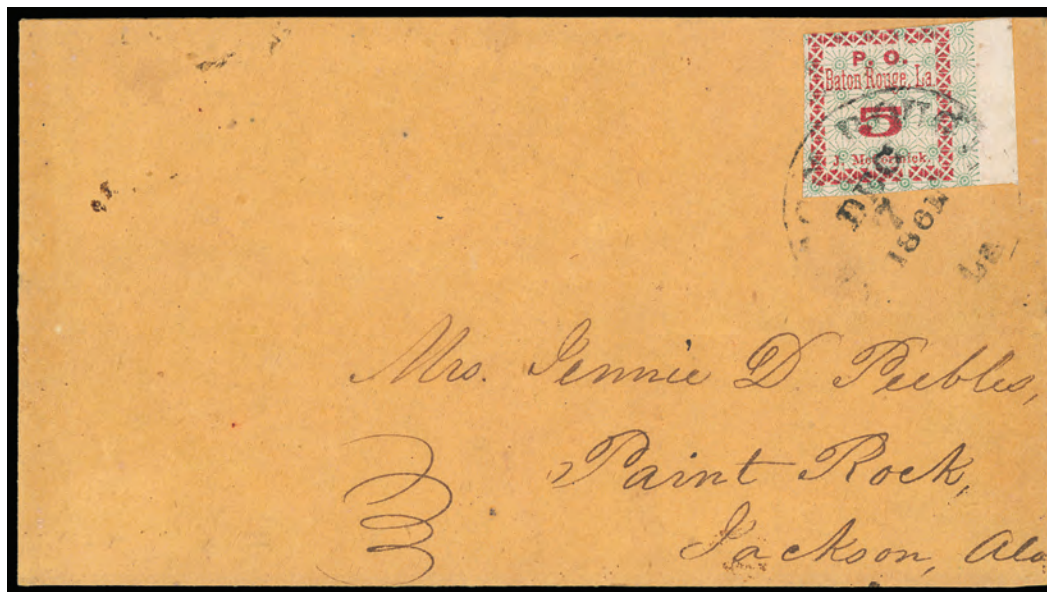 P. O.
Baton Rouge, La.
5
J. McCormick.
DEC
7
1861
La
Mrs. Jennie D. Peebles,
Paint Rock,
Jackson, Ala